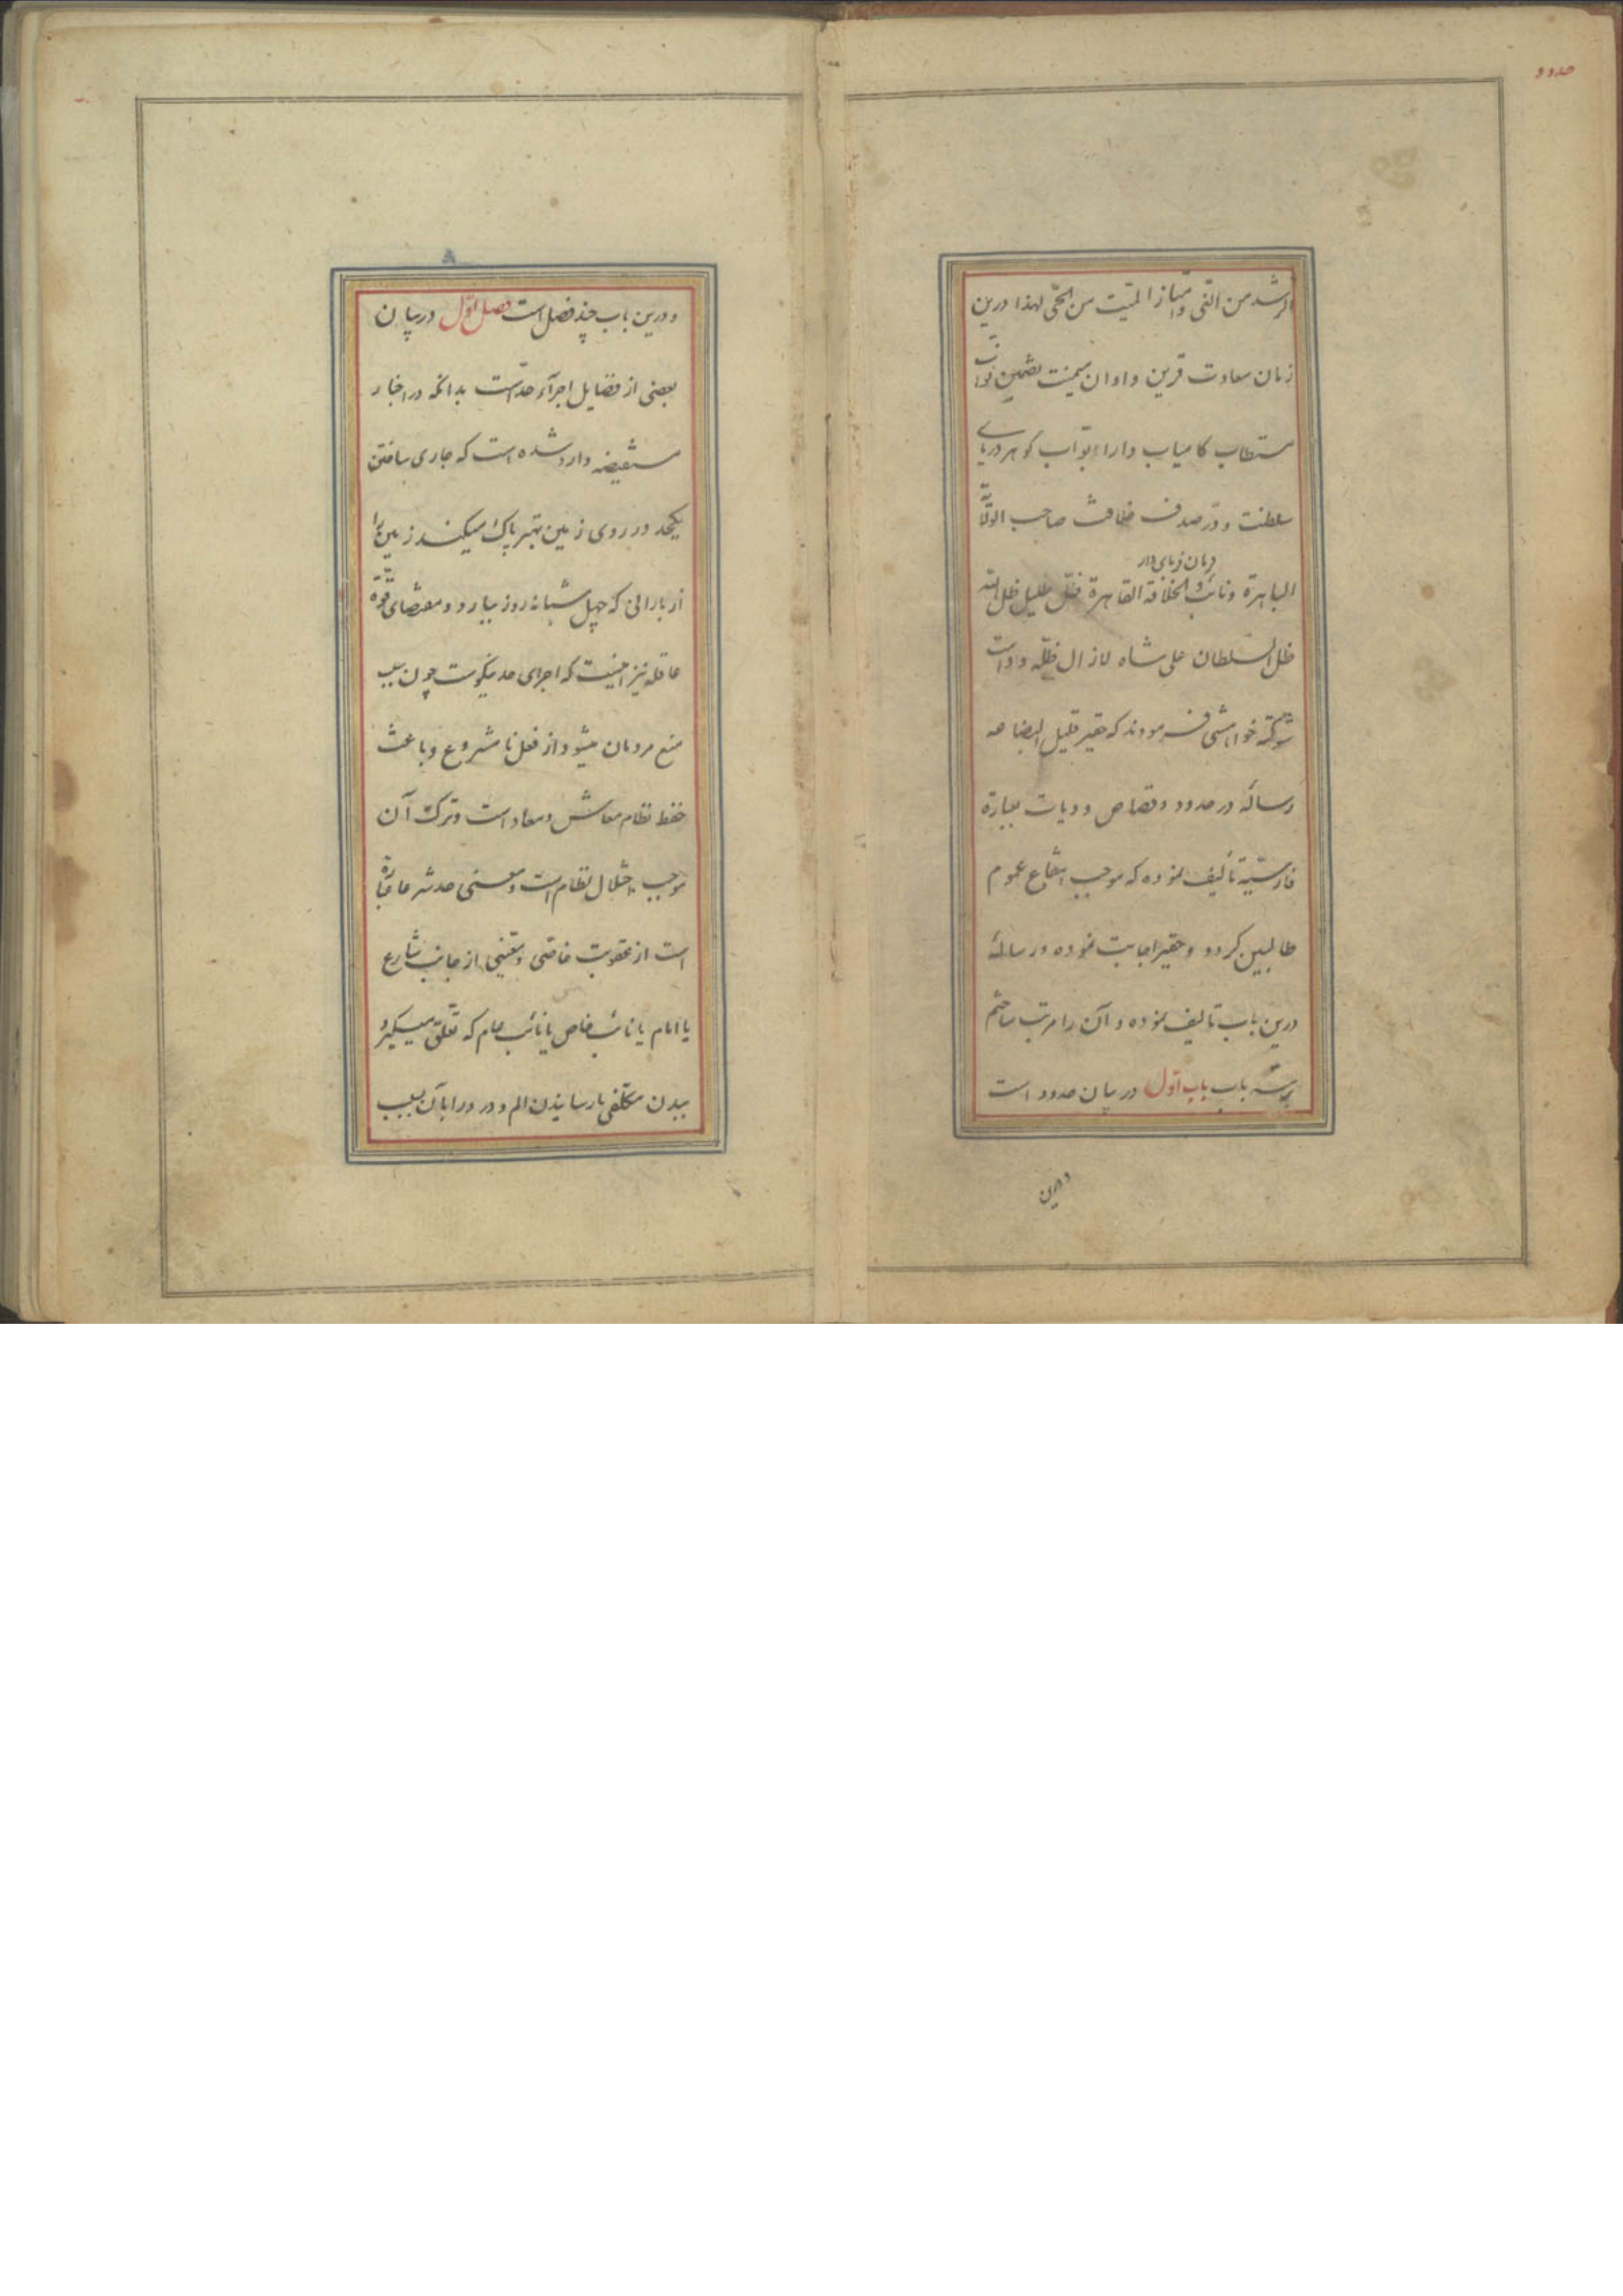 حدود
الرشد من الغی و امتیاز المیّت من الحیّ لهذا درین
زمان سعادت قرین و اوان میمنت تضمین نوّاب
مستطاب کامیاب دارا ابوّاب کوهر دریای
سلطنت و درّ صدف خلافت صاحب الدولة
فرمان فرمای دار
الباهرة و نائب الخلافة القاهرة ظلّ ظلیل ظل الله
ظل السلطان علی شاه لازال ظلّه و دامت
شوکته خواهشی فرمودند که حقیر قلیل البضاعه
رساله در حدود و قصاص و دیات بعبارة
فارسیّة تألیف نموده که موجب انتفاع عموم
طالبین کردد و حقیر اجابت نموده و رسالهٔ
درین باب تالیف نموده و آن را مرتب ساختم
بر سه باب باب اوّل در بیان حدود است
و درین
و درین باب چند فصل است فصل اوّل در بیان
بعضی از فضایل اجرآء حدّ است بدانکه در اخبار
مستفیضه وارد شده است که جاری ساختن
یکحد در روی زمین بهتر پاک میکند زمین را
از بارانی که چهل شبانه روز ببارد و مقتضای قوّة
عاقله نیز اینست که اجرای حد نیکوست چون سبب
منع مردمان میشود از فعل نا مشروع و باعث
حفظ نظام معاش و معاد است و ترک آن
موجب اختلال نظام است و معنی حد شرعا عبارة
است از عقوبت خاصّی و معیّنی از جانب شارع
یا امام یا نائب خاص یا نائب عام که تعلّق میگیرد
ببدن مکلّفی بارسانیدن الم و درد را بآن بسبب